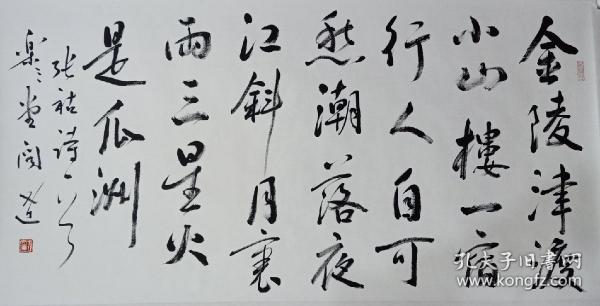 金陵津渡
小山樓一宿
行人自可
愁潮落夜
江斜月裏
兩三星火
是瓜洲
张祜詩一首
孔夫子旧书网